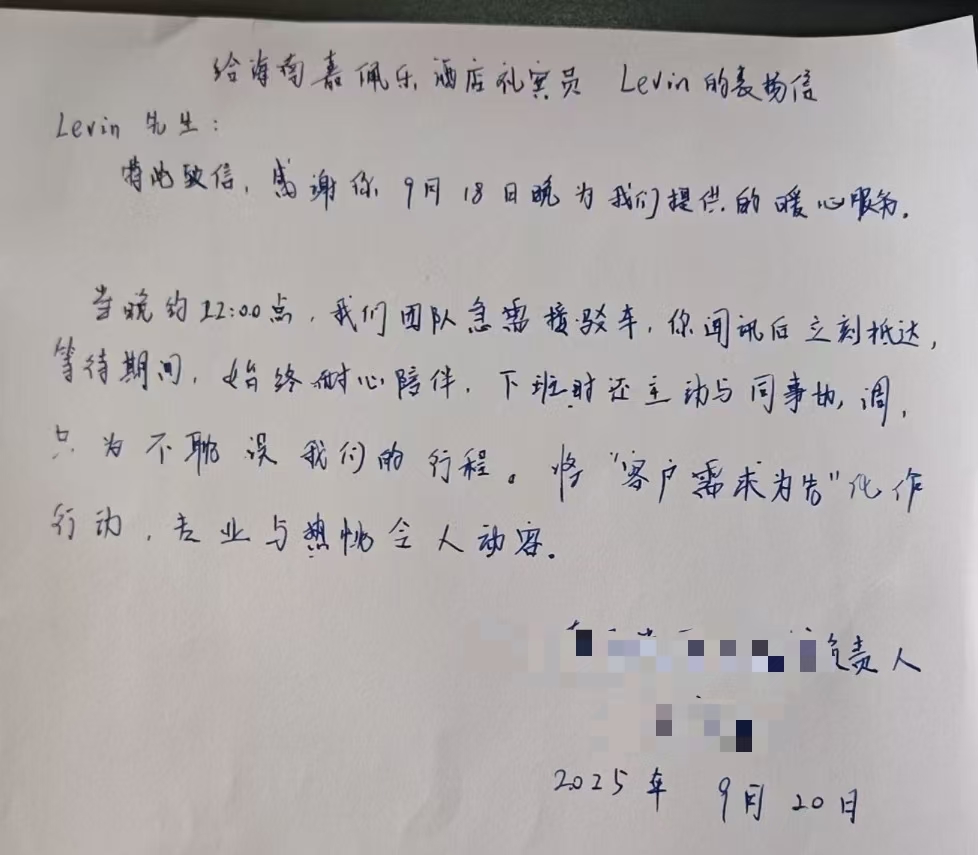 给海南嘉佩乐酒店礼宾员 Levin的表扬信
Levin 先生：
特此致信，感谢你9月18日晚为我们提供的暖心服务。
当晚约22:00点，我们团队急需接驳车，你闻讯后立刻抵达，
等待期间，始终耐心陪伴，下班时还主动与同事协调，
只为不耽误我们的行程。将“客户需求为先”化作
行动，专业与热忱令人动容。
负责人
2025年 9月20日